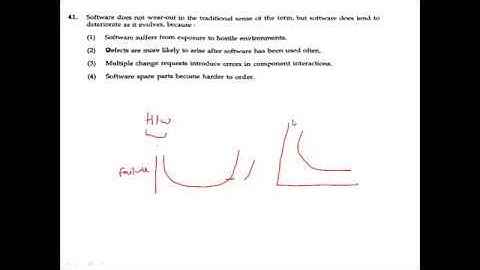 41. Software does not wear-out in the traditional sense of the term, but software does tend to
deteriorate as it evolves, because :
(1) Software suffers from exposure to hostile environments.
(2) Defects are more likely to arise after software has been used often.
(3) Multiple change requests introduce errors in component interactions.
(4) Software spare parts become harder to order.
H/W
failure